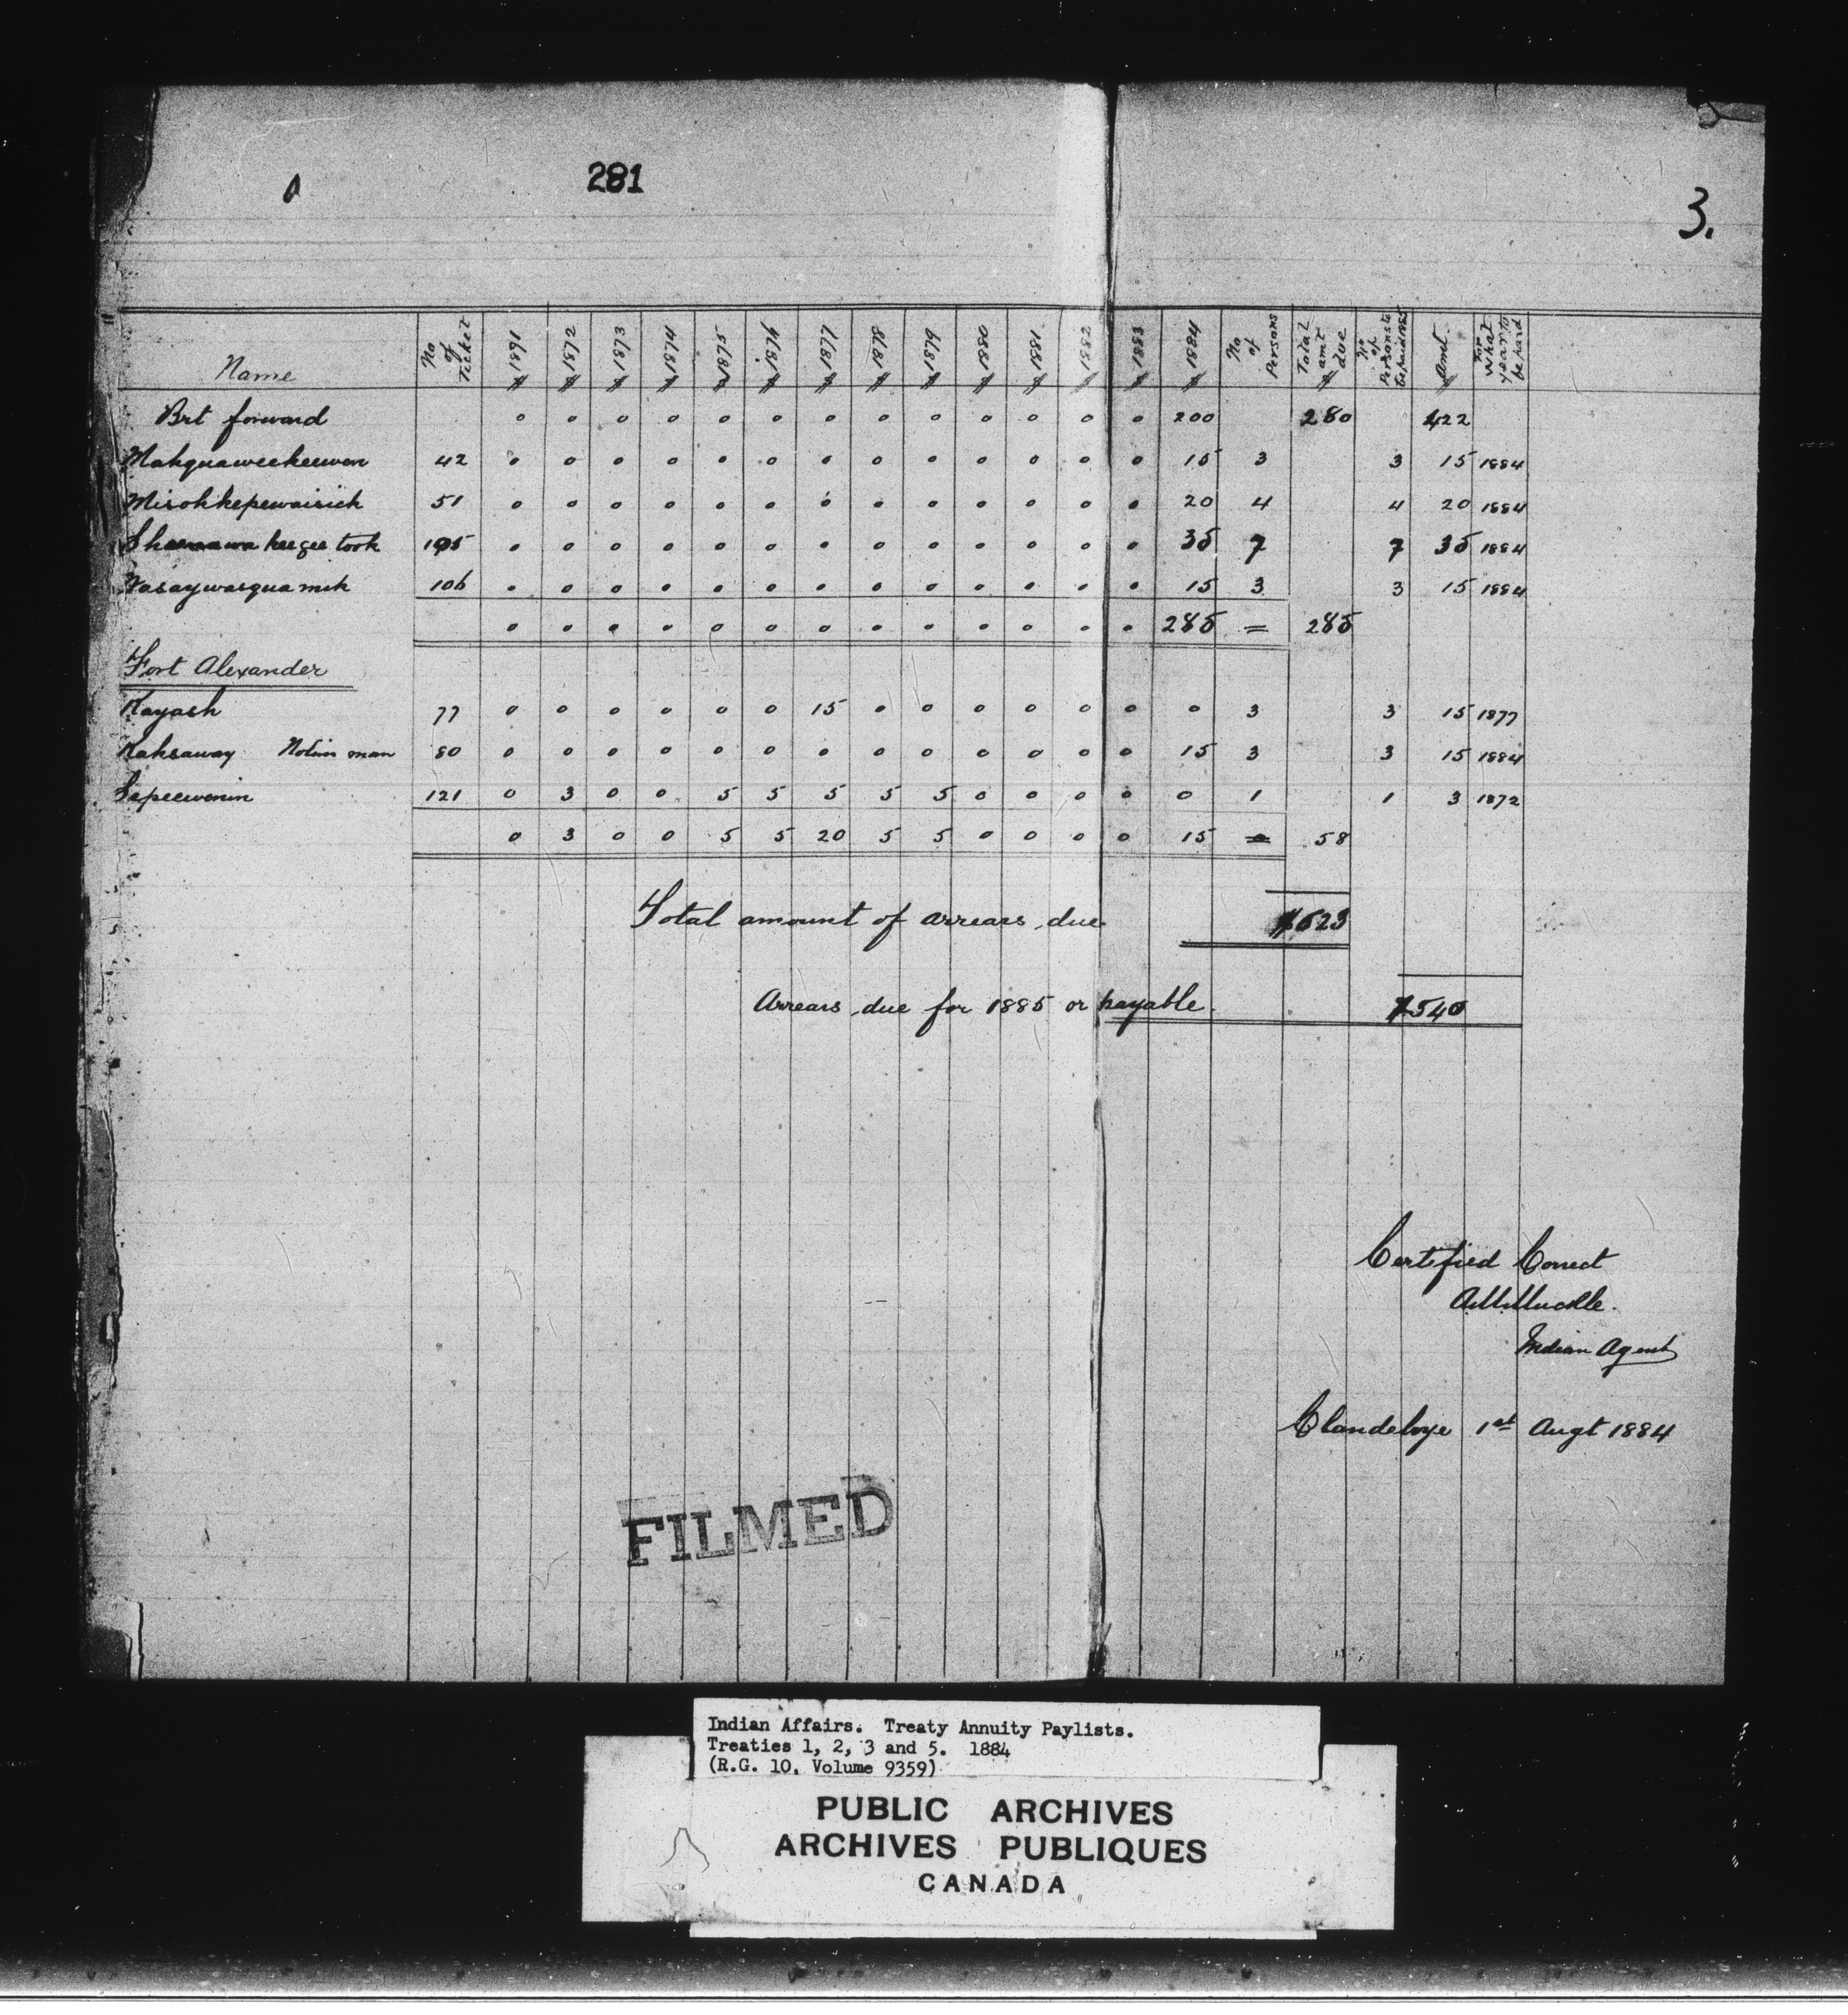 281
3.
Name No of Ticket $ 1871 $ 1872 $ 1873 $ 1874 $ 1875 $ 1876 $ 1877 $ 1878 $ 1879 $ 1880 $ 1881 $ 1882 $ 1883 $ 1884 No of Persons Total amt $ due No of Persons to be paid 1885 Amt. $ For what year to be paid
Brt forward 0 0 0 0 0 0 0 0 0 0 0 0 0 200 280 422
Mahquaweekeewen 42 0 0 0 0 0 0 0 0 0 0 0 0 0 15 3 3 15 1884
Misohkepewaisick 51 0 0 0 0 0 0 0 0 0 0 0 0 0 20 4 4 20 1884
keegee took 105 0 0 0 0 0 0 0 0 0 0 0 0 0 35 7 7 35 1884
Wasaywasquamuk 106 0 0 0 0 0 0 0 0 0 0 0 0 0 15 3 3 15 1884
0 0 0 0 0 0 0 0 0 0 0 0 0 285 = 285
Fort Alexander
Kayash 77 0 0 0 0 0 0 15 0 0 0 0 0 0 0 3 3 15 1877
Kaksaway 80 0 0 0 0 0 0 0 0 0 0 0 0 0 15 3 3 15 1884
Sepeewenin 121 0 3 0 0 5 5 5 5 5 0 0 0 0 0 1 1 3 1872
0 3 0 0 5 5 20 5 5 0 0 0 0 15 = 58
Total amount of arrears due $623
Arrears due for 1885 or payable. $540
Certified Correct
A.M. Muckle.
Indian Agent
Clandeboye 1st Augt 1884
FILMED
Indian Affairs. Treaty Annuity Paylists.
Treaties 1, 2, 3 and 5. 1884
(R.G. 10, Volume 9359)
PUBLIC ARCHIVES
ARCHIVES PUBLIQUES
CANADA